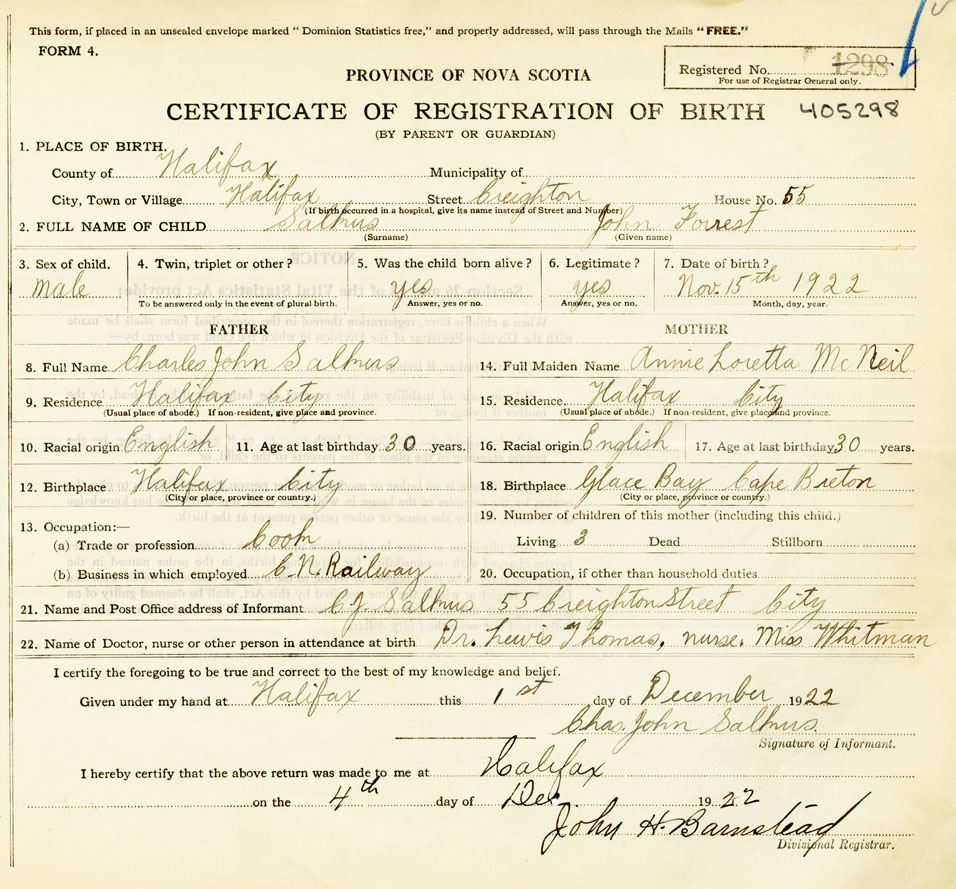 This form, if placed in an unsealed envelope marked "Dominion Statistics free," and properly addressed, will pass through the Mails "FREE."
FORM 4.
Registered No. 1298
For use of Registrar General only.
PROVINCE OF NOVA SCOTIA
CERTIFICATE OF REGISTRATION OF BIRTH 405298
(BY PARENT OR GUARDIAN)
1. PLACE OF BIRTH.
County of Halifax Municipality of
City, Town or Village Halifax Street Creighton House No. 55
(If birth occurred in a hospital, give its name instead of Street and Number)
2. FULL NAME OF CHILD Salkus John Forrest
(Surname) (Given name)
3. Sex of child. 4. Twin, triplet or other? 5. Was the child born alive? 6. Legitimate? 7. Date of birth?
Male yes yes Nov. 15th 1922
To be answered only in the event of plural birth. Answer, yes or no. Answer, yes or no. Month, day, year.
FATHER MOTHER
8. Full Name Charles John Salkus 14. Full Maiden Name Annie Loretta McNeil
9. Residence Halifax City 15. Residence. Halifax City
(Usual place of abode.) If non-resident, give place and province. (Usual place of abode.) If non-resident, give place and province.
10. Racial origin English 11. Age at last birthday 30 years. 16. Racial origin English 17. Age at last birthday 30 years.
12. Birthplace Halifax City 18. Birthplace Glace Bay Cape Breton
(City or place, province or country.) (City or place, province or country.)
13. Occupation:— 19. Number of children of this mother (including this child.)
(a) Trade or profession Cook Living 3 Dead Stillborn
(b) Business in which employed C.N. Railway 20. Occupation, if other than household duties
21. Name and Post Office address of Informant C.J. Salkus 55 Creighton Street City
22. Name of Doctor, nurse or other person in attendance at birth Dr. Lewis Thomas, nurse. Miss Whitman
I certify the foregoing to be true and correct to the best of my knowledge and belief.
Given under my hand at Halifax this 1st day of December 1922
Chas. John Salkus.
Signature of Informant.
I hereby certify that the above return was made to me at Halifax
on the 4th day of Dec. 1922
John H. Barnstead
Divisional Registrar.